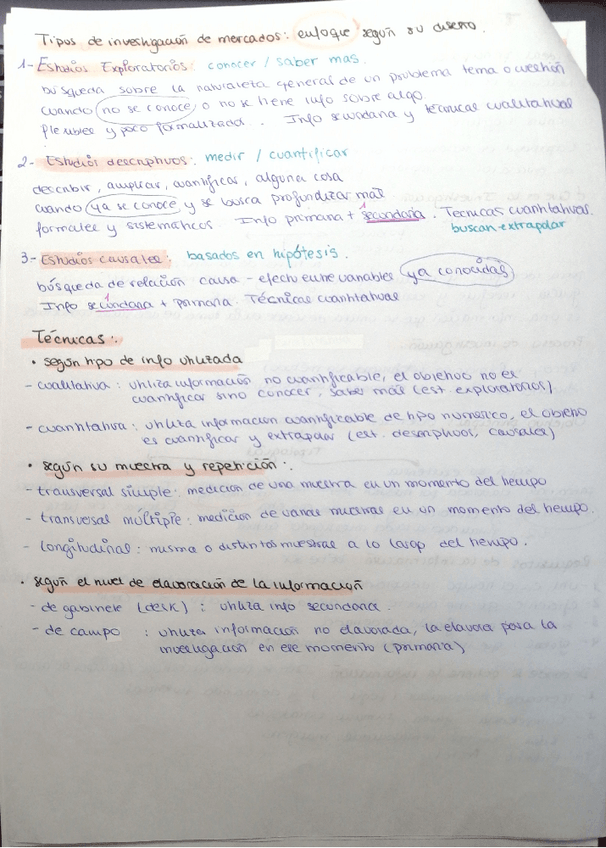 Tipos de investigación de mercados: enfoque según su diseño.
1- Estudios Exploratorios: conocer / saber mas.
búsqueda sobre la naturaleza general de un problema tema o cuestión
cuando no se conoce o no se tiene info sobre algo.
flexibles y poco formalizados. Info secundaria y técnicas cualitativas
2- Estudios descriptivos: medir / cuantificar
describir, ampliar, cuantificar, alguna cosa
cuando ya se conoce y se busca profundizar más
formales y sistemáticos. Info primaria + secundaria. Técnicas cuantitativas.
buscan extrapolar
3- Estudios causales: basados en hipótesis.
búsqueda de relación causa - efecto entre variables ya conocidas
Info secundaria + primaria. Técnicas cuantitativas
Técnicas:.
• según tipo de info utilizada
- cualitativa: utiliza información no cuantificable, el objetivo no es
cuantificar sino conocer, saber más (est. exploratorios)
- cuantitativa: utiliza información cuantificable de tipo numérico, el objetivo
es cuantificar y extrapolar (est. descriptivos, causales)
• según su muestra y repetición:.
- transversal simple: medición de una muestra en un momento del tiempo
- transversal múltiple: medición de varias muestras en un momento del tiempo.
- longitudinal: misma o distintas muestras a lo largo del tiempo.
• según el nivel de elaboración de la información
- de gabinete (desk): utiliza info secundaria.
- de campo: utiliza información no elavorada, la elavora para la
investigación en ese momento (primaria)